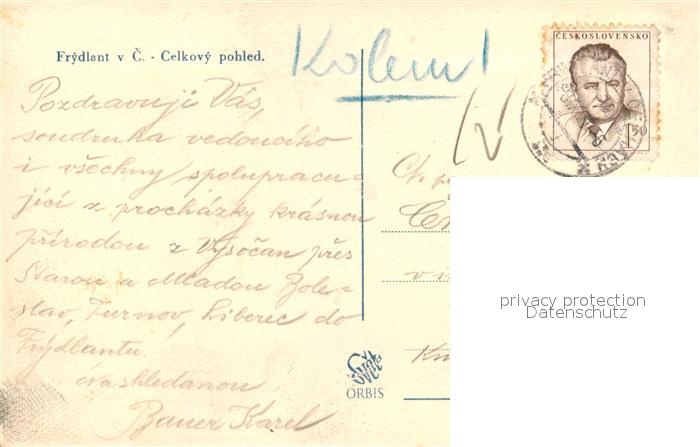 Frýdlant v Č. - Celkový pohled.
Kolem!
ČESKOSLOVENSKO
1.50
Pozdravuji Vás,
soudruha vedoucího
i všechny spolupracu-
jící z procházky krásnou
přírodou z Vysočan přes
Starou a Mladou Bole-
slav, Turnov, Liberec do
Frýdlantu.
Na shledanou
Bauer Karel
Svět
ORBIS
privacy protection
Datenschutz